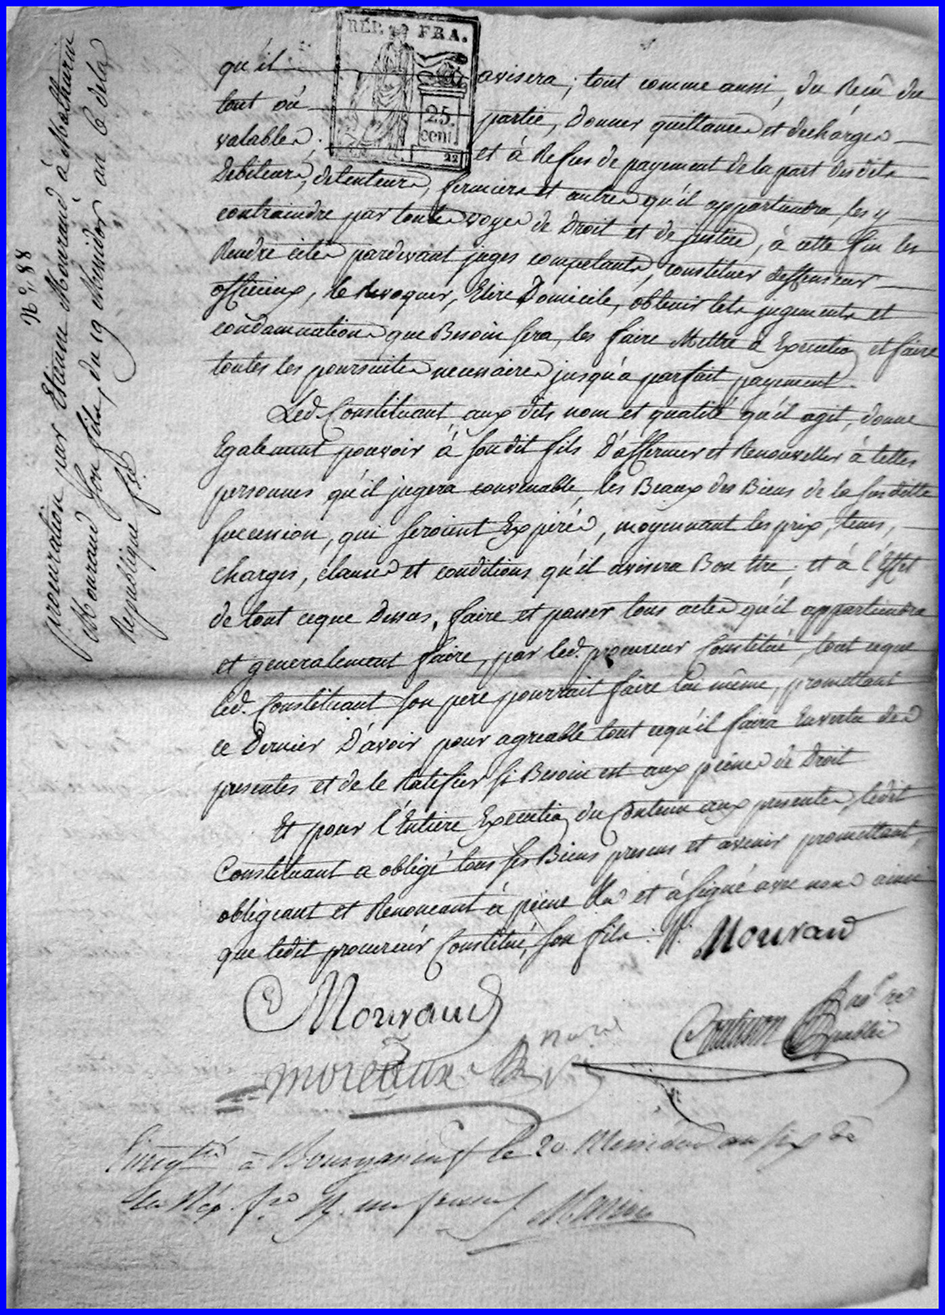 RÉP. FRA.
25.
cent.
22
qu'il avisera; tout comme aussi, du Recu du
tout ou partie, Donner quittances et decharges
valables. et à Refus de payement de la part desdits
Debiteurs, detenteurs, fermiers et autres qu'il appartiendra, les y
contraindre par toutes voyes de Droit et de justice, à cette fin les
Rendre cités pardevant juges competants, constituer deffenseur
officieux, le Revoquer, Elire Domicile, obtenir tels jugements et
condamnations que Besoin sera, les faire Mettre à Execution, et faire
toutes les poursuites necessaires jusqu'a parfait payement.
Led. Constituant aux dits nom et qualité qu'il agit, donne
Egalement pouvoir à son dit fils D'affermer et Renouveller à telles
personnes qu'il jugera convenable, les Beaux des Biens de la susdite
succession, qui seroient Expirés, moyennant les prix, tems,
charges, clauses et conditions qu'il avisera Bon être, et à l'Effet
de tout ceque Dessus, faire et passer tous actes qu'il appartiendra
et generalement faire, par led. procureur Constitué, tout ceque
led. Constituant son pere pourrait faire lui même, promettant
ce Dernier D'avoir pour agreable tout cequ'il faira En vertu des
presentes et de le Ratifier si Besoin est aux peines de Droit
Et pour l'Entiere Execution du Contenu aux presentes, ledit
Constituant a obligé tous ses Biens presens et avenir promettant,
obligeant et Renonçant à peine et à signé avec nous ainsi
que ledit procureur Constitué, son fils.
Mourand
Mourand
moreaux
à Bourganeuf le 20. Messidor an six de
la Rép. un franc
N.° 88
procuration par Etienne Mourand à Mathurin
Mourand son fils, du 19 Messidor an 6 de la
Republique